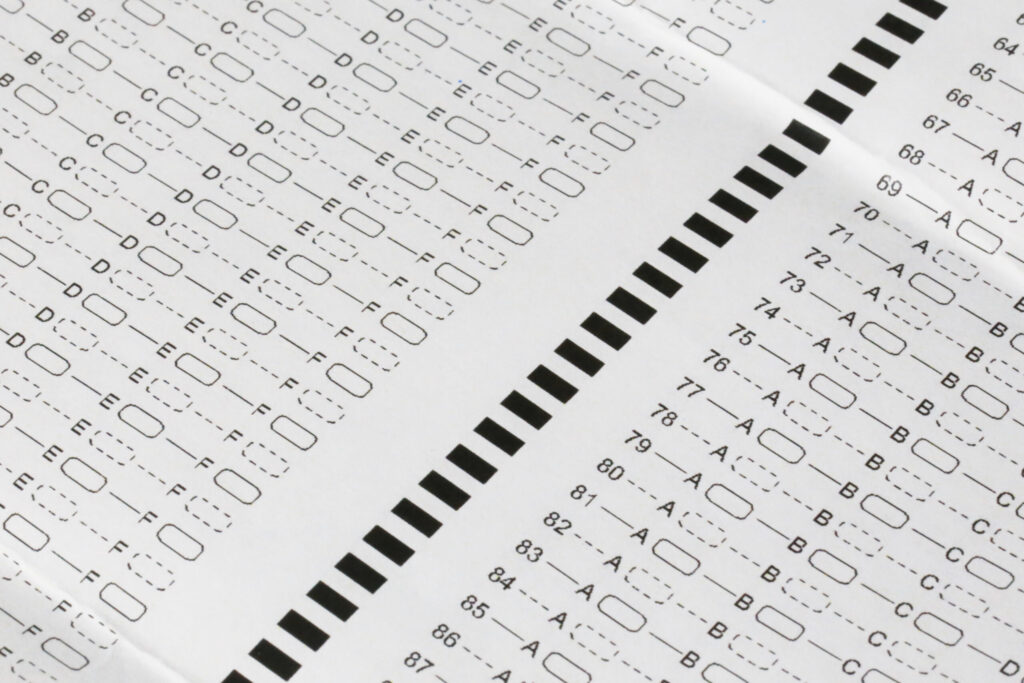 F
E F
E F
E F
D E F
D E F
C D E F
C D E F
C D E F
B C D E F
B C D E F
B C D E F
B C D E F
C D E F
C D E F
C D E F
D E F
D E F
D E F
E F
E F
E F
F
F
F
F
64
65
66 A
67 A
68 A
69 A
70 A
71 A B
72 A B
73 A B
74 A B
75 A B C
76 A B C
77 A B C
78 A B C
79 A B C D
80 A B C
81 A B C
82 A B
83 A B
84 A
85 A
86 A
87